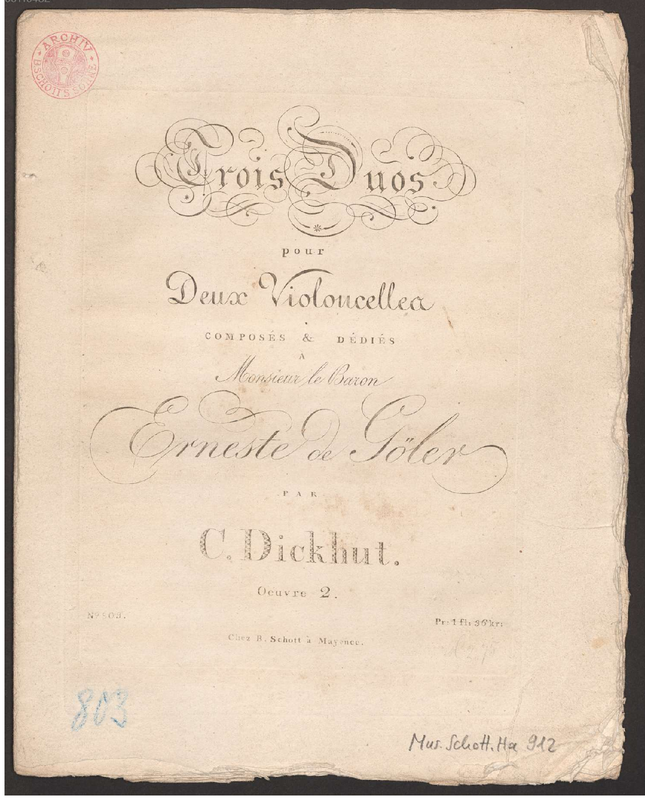 ARCHIV
B. SCHOTT'S SÖHNE
Trois Duos
pour
Deux Violoncelles
COMPOSÉS & DÉDIÉS
A
Monsieur le Baron
Erneste de Göler
PAR
C. Dickhut.
Oeuvre 2.
N° 803.
Pr: 1 fl: 36 kr:
Chez B. Schott à Mayence.
803
Mus. Schott. Ha 912